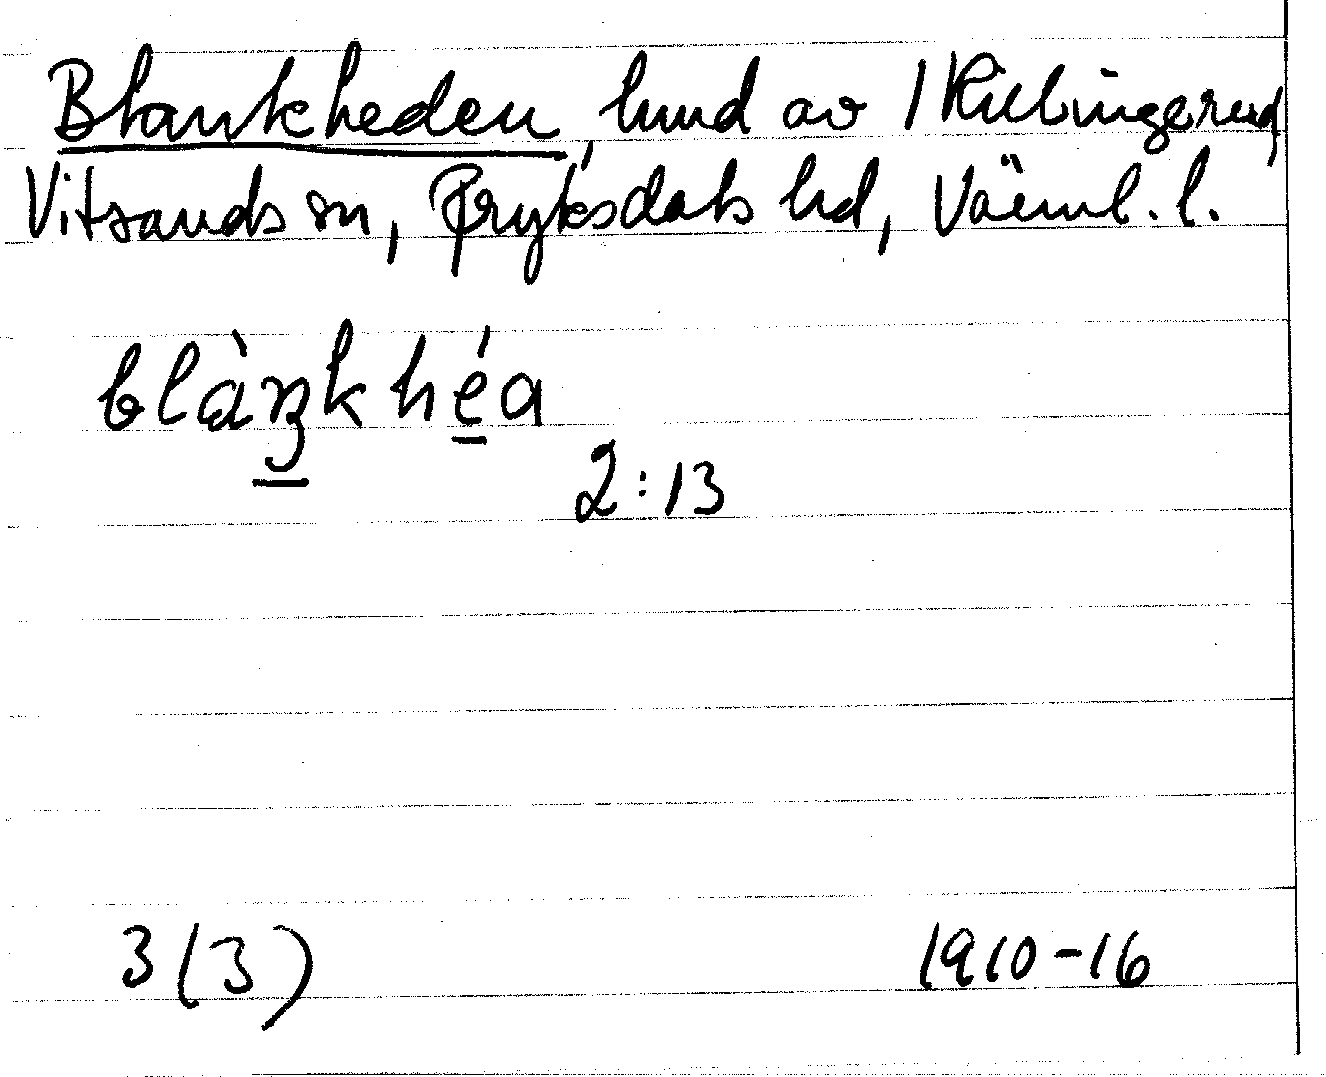 Blankheden, lund av 1 Killingerud,
Vitsands sn, Fryksdals hd, Värml. l.
blàŋkhéa
2:13
3(3)
1910-16